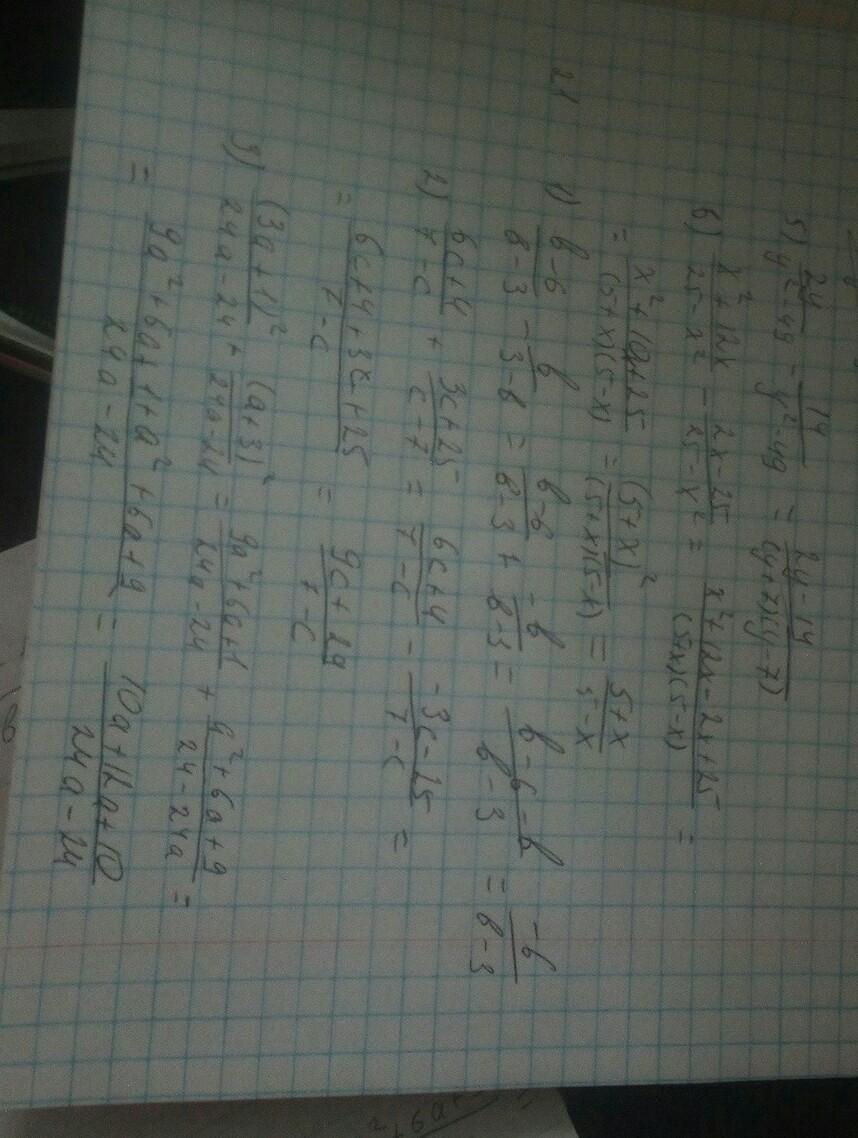 5) 2y/(y² - 49) - 14/(y² - 49) = (2y - 14)/((y + 7)(y - 7))
6) (x² + 12x)/(25 - x²) - (2x - 25)/(25 - x²) = (x² + 12x - 2x + 25)/((5+x)(5-x)) =
= (x² + 10x + 25)/((5+x)(5-x)) = (5+x)²/((5+x)(5-x)) = (5+x)/(5-x)
21 1) (b-6)/(b-3) - b/(3-b) = (b-6)/(b-3) + -b/(b-3) = (b-6-b)/(b-3) = -6/(b-3)
2) (6c+4)/(7-c) + (3c+25)/(c-7) = (6c+4)/(7-c) - (-3c-25)/(7-c) =
= (6c+4+3c+25)/(7-c) = (9c+29)/(7-c)
3) (3a+1)²/(24a-24) + (a+3)²/(24a-24) = (9a²+6a+1)/(24a-24) + (a²+6a+9)/(24-24a) =
= (9a²+6a+1+a²+6a+9)/(24a-24) = (10a+12a+10)/(24a-24)